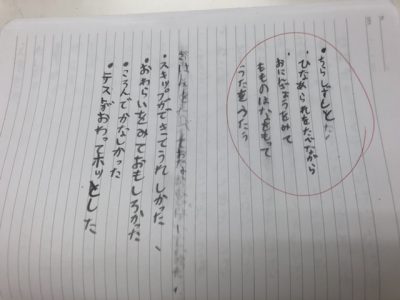 ・ちらしずしと
・ひなあられをたべながら
・おにんぎょうをみて
もものはなをもって
うたをうたう
・スキップができてうれしかった
・おわらいをみておもしろかった
・ころんでかなしかった
・テストがおわってホッとした